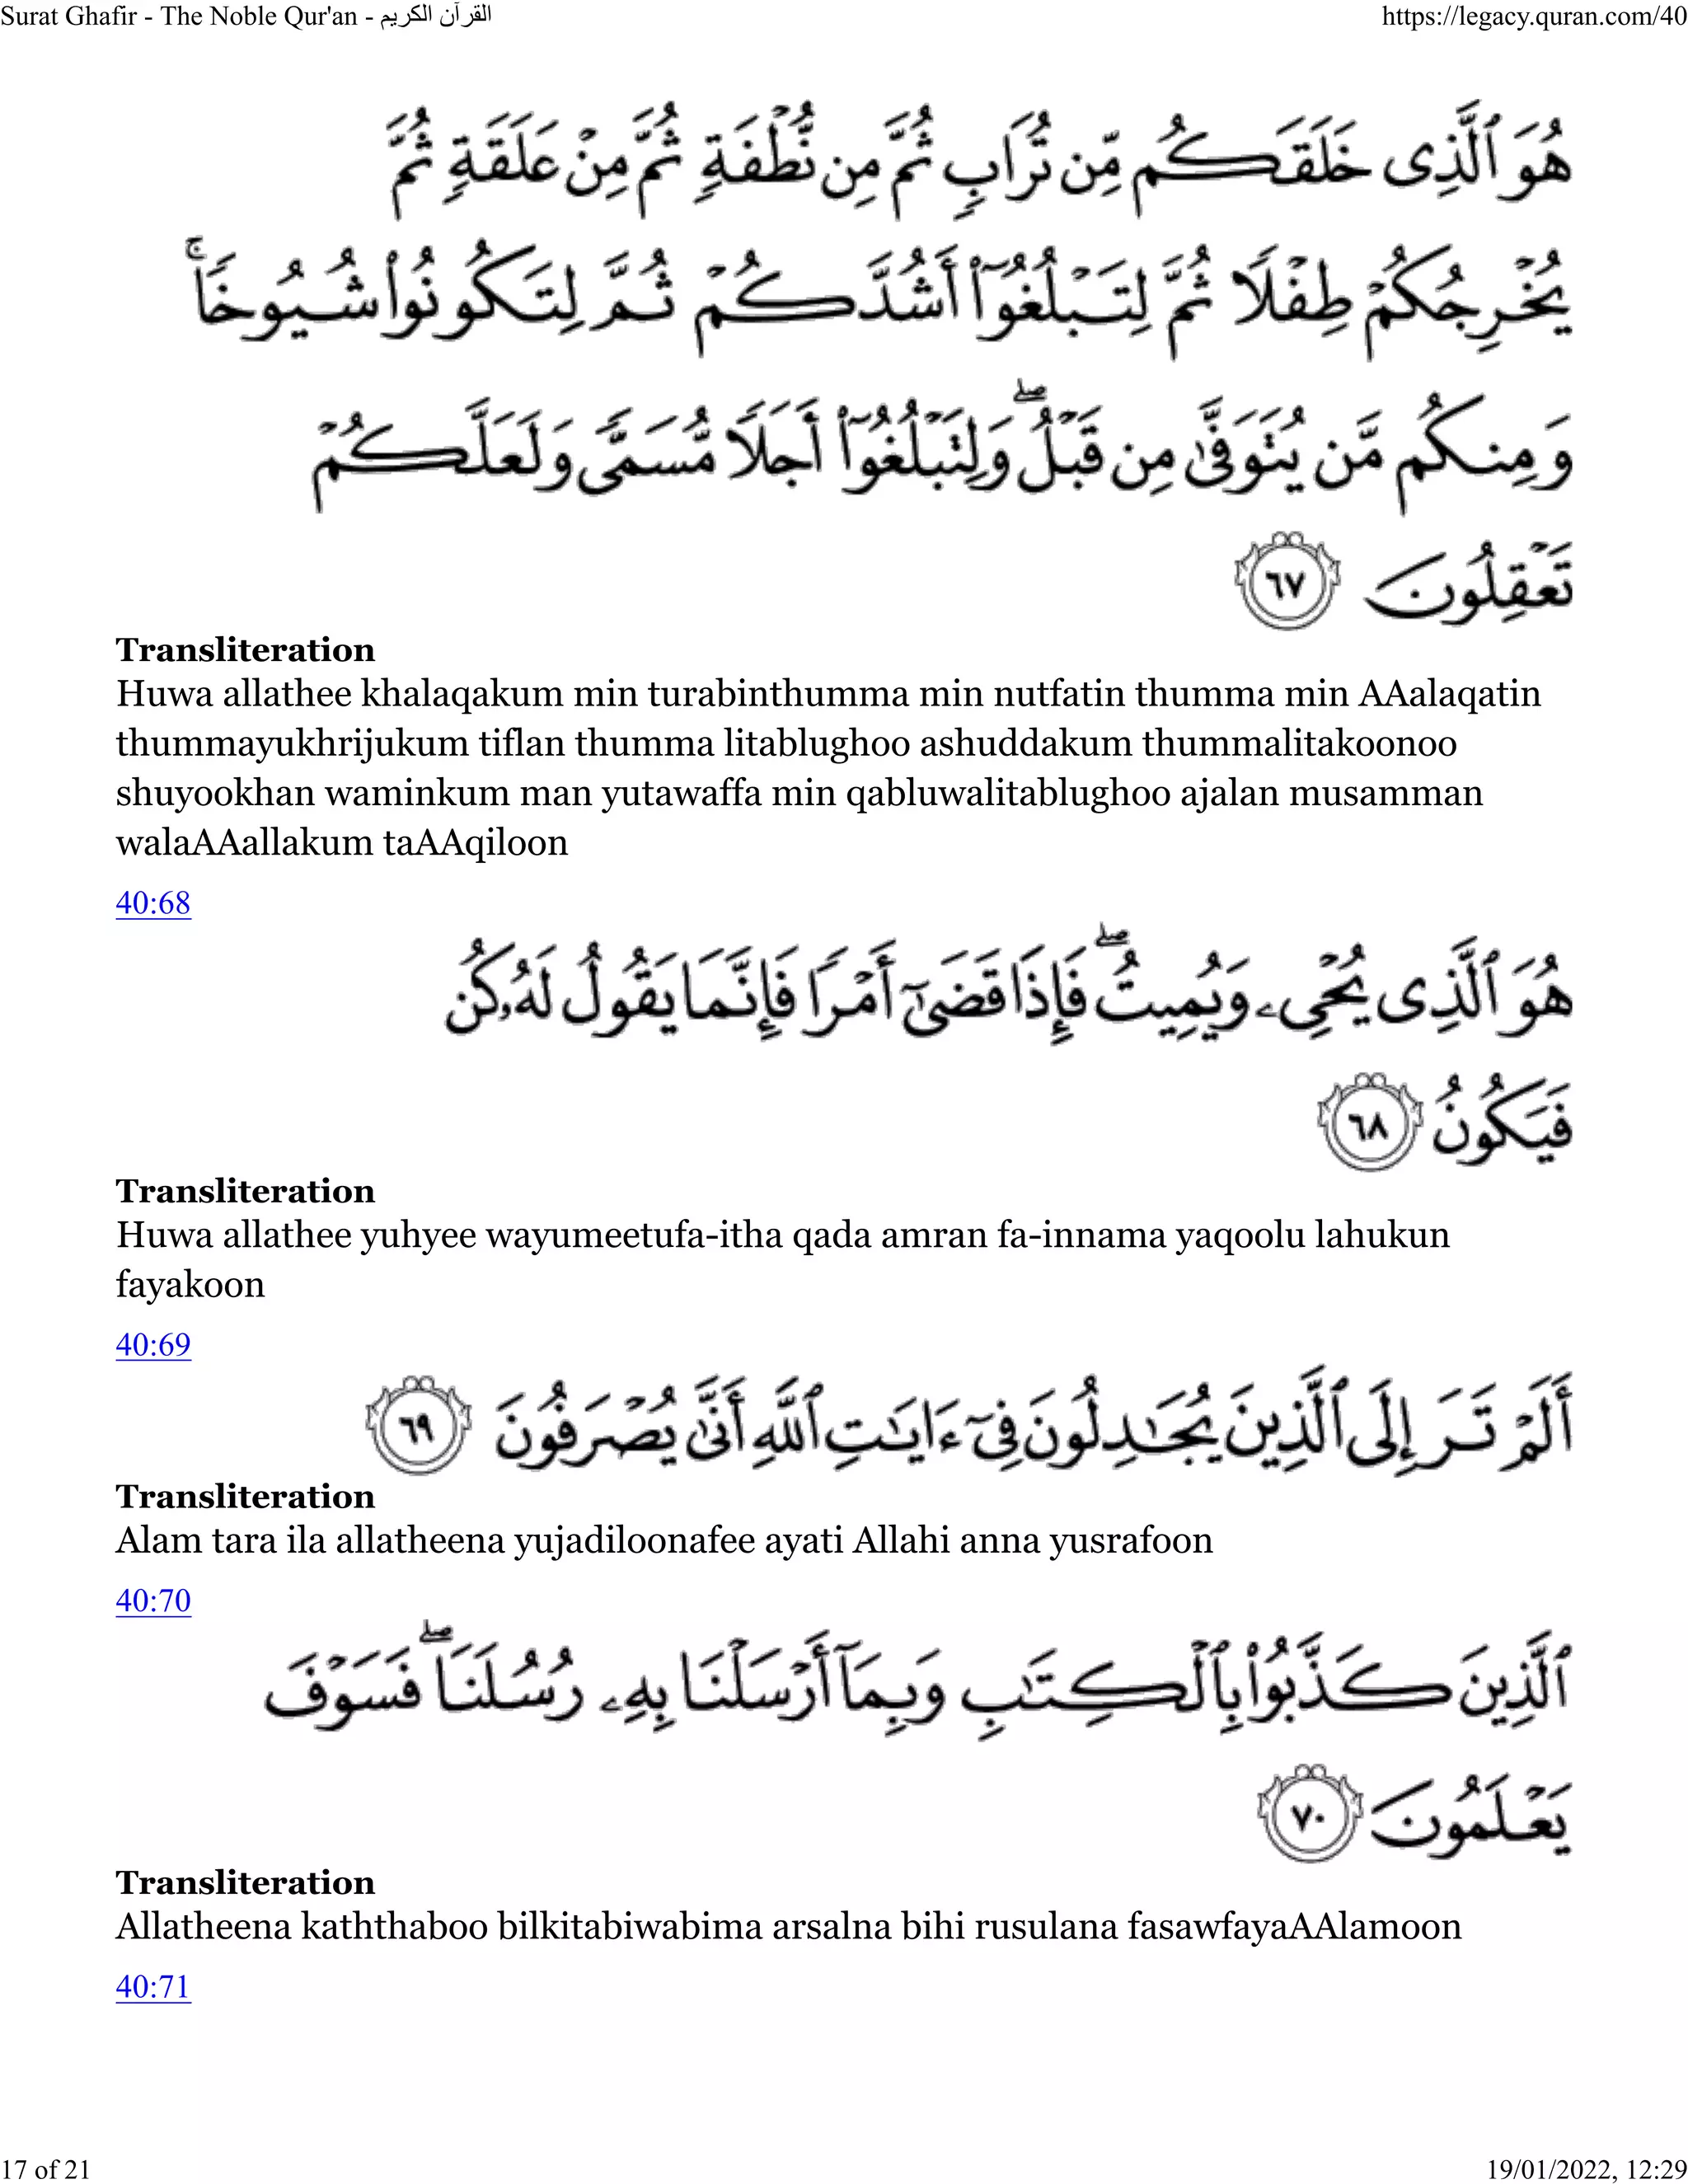 Surat Ghafir - The Noble Qur'an - القرآن الكريم
https://legacy.quran.com/40
هُوَ ٱلَّذِى خَلَقَكُم مِّن تُرَابٍ ثُمَّ مِن نُّطْفَةٍ ثُمَّ مِنْ عَلَقَةٍ ثُمَّ
يُخْرِجُكُمْ طِفْلًا ثُمَّ لِتَبْلُغُوٓا۟ أَشُدَّكُمْ ثُمَّ لِتَكُونُوا۟ شُيُوخًا ۚ
وَمِنكُم مَّن يُتَوَفَّىٰ مِن قَبْلُ ۖ وَلِتَبْلُغُوٓا۟ أَجَلًا مُّسَمًّى وَلَعَلَّكُمْ
تَعْقِلُونَ ٦٧
Transliteration
Huwa allathee khalaqakum min turabinthumma min nutfatin thumma min AAalaqatin
thummayukhrijukum tiflan thumma litablughoo ashuddakum thummalitakoonoo
shuyookhan waminkum man yutawaffa min qabluwalitablughoo ajalan musamman
walaAAallakum taAAqiloon
40:68
هُوَ ٱلَّذِى يُحْىِۦ وَيُمِيتُ ۖ فَإِذَا قَضَىٰٓ أَمْرًا فَإِنَّمَا يَقُولُ لَهُۥ كُن
فَيَكُونُ ٦٨
Transliteration
Huwa allathee yuhyee wayumeetufa-itha qada amran fa-innama yaqoolu lahukun
fayakoon
40:69
أَلَمْ تَرَ إِلَى ٱلَّذِينَ يُجَـٰدِلُونَ فِىٓ ءَايَـٰتِ ٱللَّهِ أَنَّىٰ يُصْرَفُونَ ٦٩
Transliteration
Alam tara ila allatheena yujadiloonafee ayati Allahi anna yusrafoon
40:70
ٱلَّذِينَ كَذَّبُوا۟ بِٱلْكِتَـٰبِ وَبِمَآ أَرْسَلْنَا بِهِۦ رُسُلَنَا ۖ فَسَوْفَ
يَعْلَمُونَ ٧٠
Transliteration
Allatheena kaththaboo bilkitabiwabima arsalna bihi rusulana fasawfayaAAlamoon
40:71
17 of 21
19/01/2022, 12:29